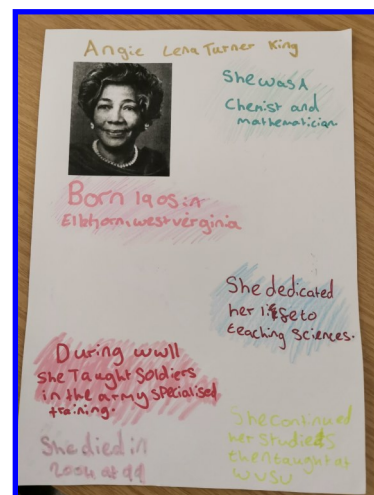 Angie Lena Turner King
She was A
Chemist and
mathematician
Born 1905 in
Elkhorn, west verginia
She dedicated
her life to
teaching sciences.
During WWII
she Taught Soldiers
in the army specialised
training.
She continued
her studies
then taught at
WVSU
She died in
2004 at 99